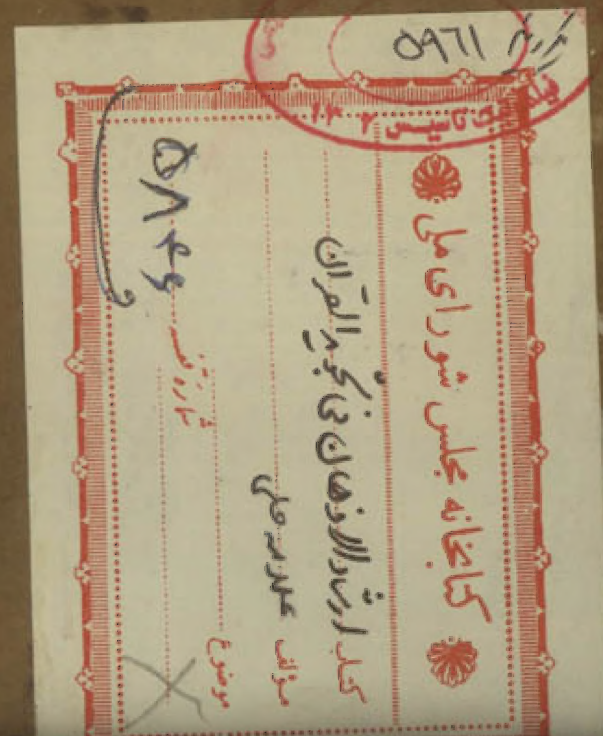 ۵۹۶۱
تأسیس ۱۳۰۲
کتابخانه مجلس شورای ملی
کتاب ارشاد الاذهان فی تجوید القرآن
مؤلف علامه حلی
موضوع
شماره قفسه ۵۸۴۶